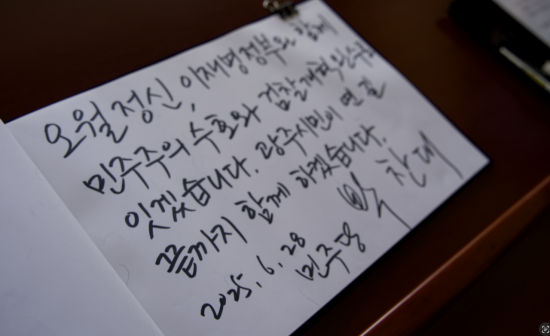 오월 정신, 이재명정부와 함께
민주주의 수호와 검찰개혁 완수로
잇겠습니다. 광주시민이 연 길
끝까지 함께 하겠습니다.
2025. 6. 28
민주당 박찬대